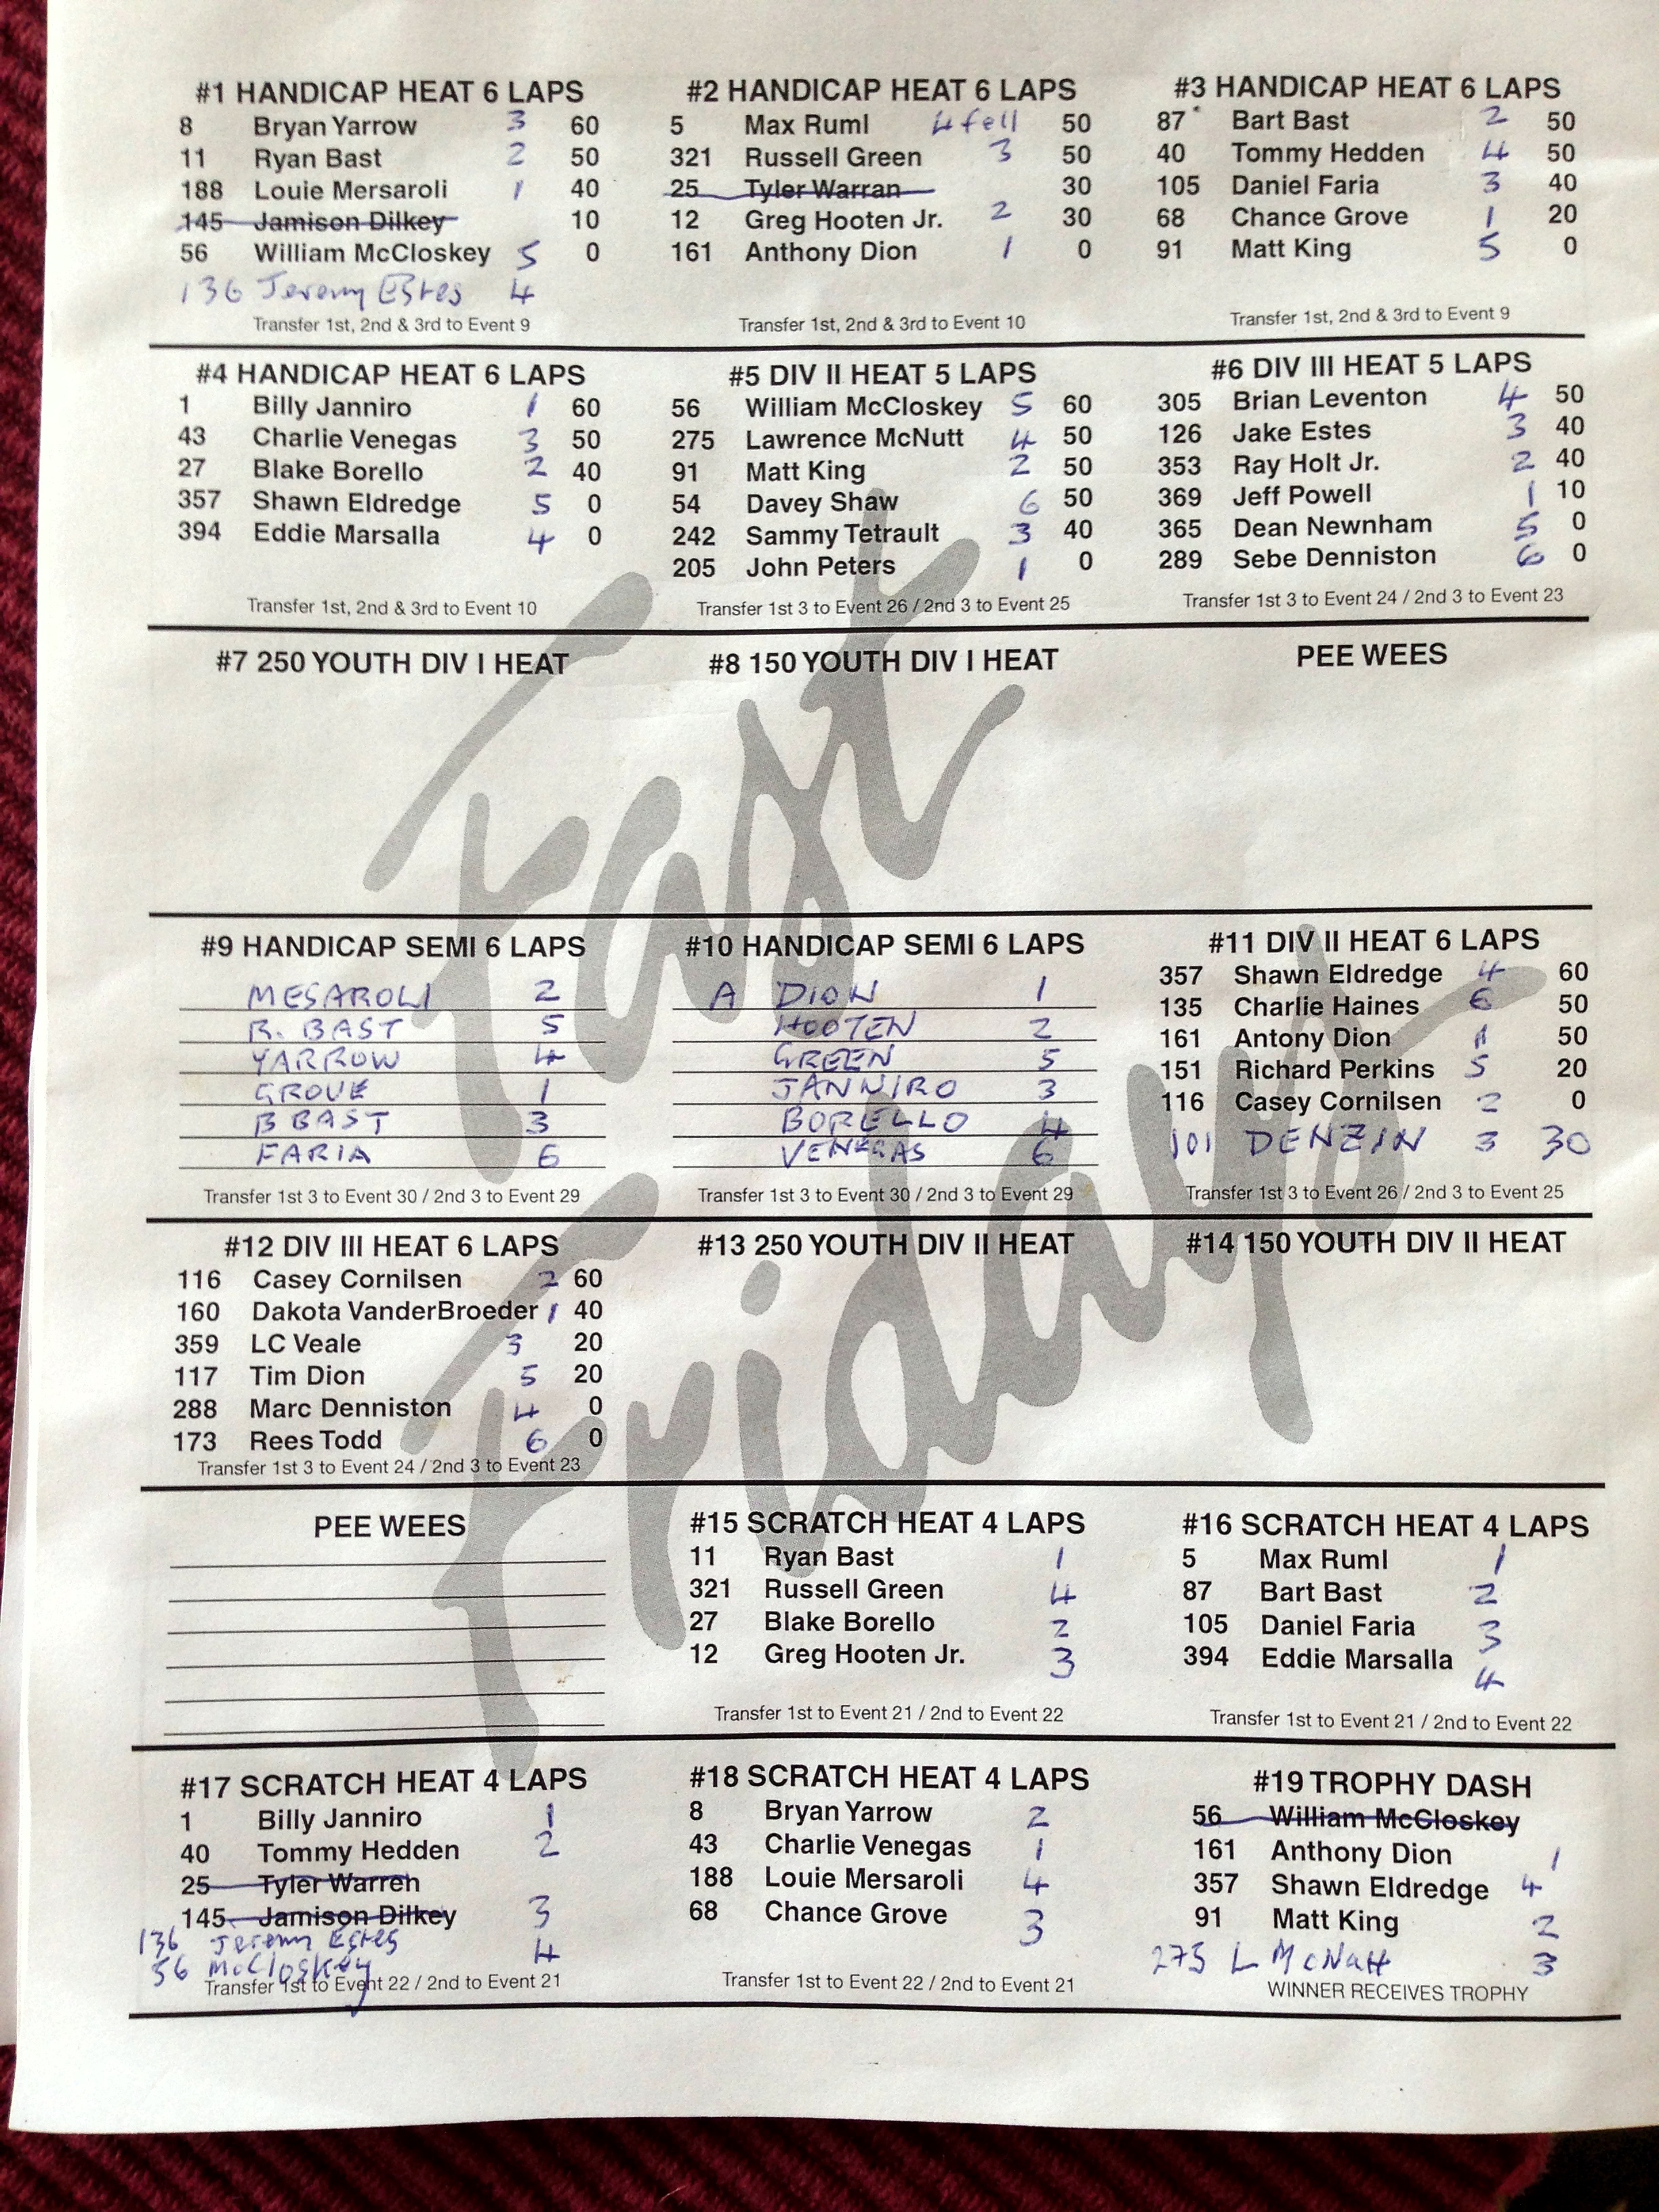 #1 HANDICAP HEAT 6 LAPS
8 Bryan Yarrow 3 60
11 Ryan Bast 2 50
188 Louie Mersaroli 1 40
145 Jamison Dilkey 10
56 William McCloskey 5 0
136 Jeremy Estes 4
Transfer 1st, 2nd & 3rd to Event 9
#2 HANDICAP HEAT 6 LAPS
5 Max Ruml 4 fell 50
321 Russell Green 3 50
25 Tyler Warran 30
12 Greg Hooten Jr. 2 30
161 Anthony Dion 1 0
Transfer 1st, 2nd & 3rd to Event 10
#3 HANDICAP HEAT 6 LAPS
87 Bart Bast 2 50
40 Tommy Hedden 4 50
105 Daniel Faria 3 40
68 Chance Grove 1 20
91 Matt King 5 0
Transfer 1st, 2nd & 3rd to Event 9
#4 HANDICAP HEAT 6 LAPS
1 Billy Janniro 1 60
43 Charlie Venegas 3 50
27 Blake Borello 2 40
357 Shawn Eldredge 5 0
394 Eddie Marsalla 4 0
Transfer 1st, 2nd & 3rd to Event 10
#5 DIV II HEAT 5 LAPS
56 William McCloskey 5 60
275 Lawrence McNutt 4 50
91 Matt King 2 50
54 Davey Shaw 6 50
242 Sammy Tetrault 3 40
205 John Peters 1 0
Transfer 1st 3 to Event 26 / 2nd 3 to Event 25
#6 DIV III HEAT 5 LAPS
305 Brian Leventon 4 50
126 Jake Estes 3 40
353 Ray Holt Jr. 2 40
369 Jeff Powell 1 10
365 Dean Newnham 5 0
289 Sebe Denniston 6 0
Transfer 1st 3 to Event 24 / 2nd 3 to Event 23
#7 250 YOUTH DIV I HEAT
#8 150 YOUTH DIV I HEAT
PEE WEES
Fast Fridays
#9 HANDICAP SEMI 6 LAPS
MESAROLI 2
R. BAST 5
YARROW 4
GROVE 1
B BAST 3
FARIA 6
Transfer 1st 3 to Event 30 / 2nd 3 to Event 29
#10 HANDICAP SEMI 6 LAPS
A DION 1
HOOTEN 2
GREEN 5
JANNIRO 3
BORELLO 4
VENEGAS 6
Transfer 1st 3 to Event 30 / 2nd 3 to Event 29
#11 DIV II HEAT 6 LAPS
357 Shawn Eldredge 4 60
135 Charlie Haines 6 50
161 Antony Dion 1 50
151 Richard Perkins 5 20
116 Casey Cornilsen 2 0
101 DENZIN 3 30
Transfer 1st 3 to Event 26 / 2nd 3 to Event 25
#12 DIV III HEAT 6 LAPS
116 Casey Cornilsen 2 60
160 Dakota VanderBroeder 1 40
359 LC Veale 3 20
117 Tim Dion 5 20
288 Marc Denniston 4 0
173 Rees Todd 6 0
Transfer 1st 3 to Event 24 / 2nd 3 to Event 23
#13 250 YOUTH DIV II HEAT
#14 150 YOUTH DIV II HEAT
PEE WEES
#15 SCRATCH HEAT 4 LAPS
11 Ryan Bast 1
321 Russell Green 4
27 Blake Borello 2
12 Greg Hooten Jr. 3
Transfer 1st to Event 21 / 2nd to Event 22
#16 SCRATCH HEAT 4 LAPS
5 Max Ruml 1
87 Bart Bast 2
105 Daniel Faria 3
394 Eddie Marsalla 4
Transfer 1st to Event 21 / 2nd to Event 22
#17 SCRATCH HEAT 4 LAPS
1 Billy Janniro 1
40 Tommy Hedden 2
25 Tyler Warren
145 Jamison Dilkey 3
136 Jeremy Estes 4
56 McCloskey
Transfer 1st to Event 22 / 2nd to Event 21
#18 SCRATCH HEAT 4 LAPS
8 Bryan Yarrow 2
43 Charlie Venegas 1
188 Louie Mersaroli 4
68 Chance Grove 3
Transfer 1st to Event 22 / 2nd to Event 21
#19 TROPHY DASH
56 William McCloskey
161 Anthony Dion 1
357 Shawn Eldredge 4
91 Matt King 2
275 L McNutt 3
WINNER RECEIVES TROPHY